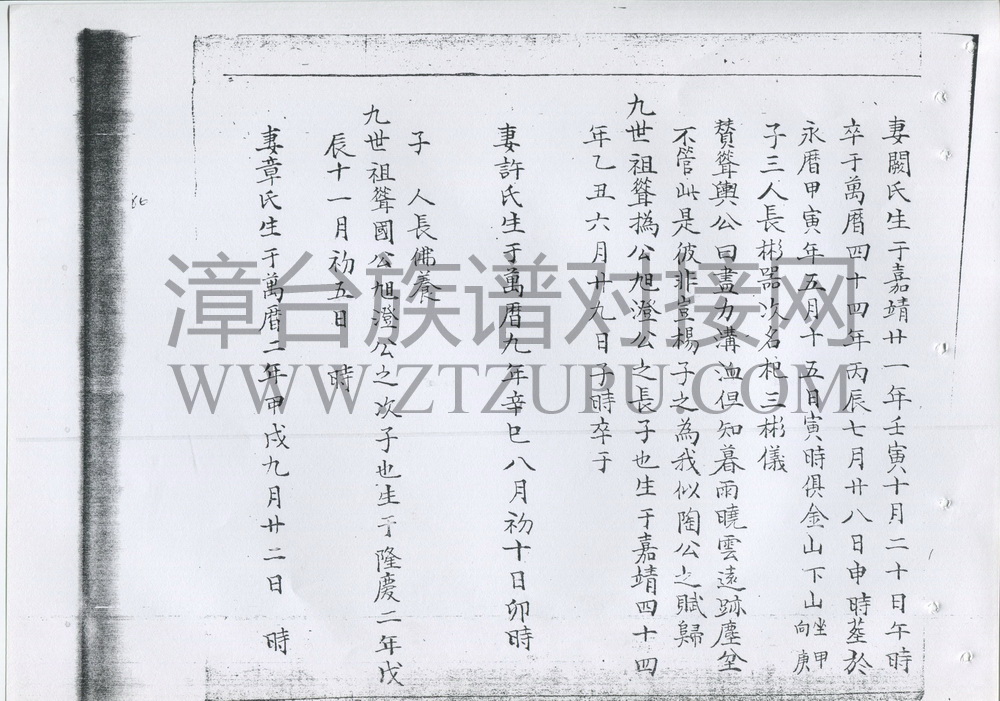 妻闕氏生于嘉靖廿一年壬寅十月二十日午時
卒于萬曆四十四年丙辰七月廿八日申時塟於
永曆甲寅年五月十五日寅時俱金山下山坐甲向庚
子三人長彬器次名杞三彬儀
賛聳輿公曰盡力溝洫但知暮雨曉雲遠跡塵坌
不管此是彼非豈楊子之為我似陶公之賦歸
九世祖聳撝公旭澄公之長子也生于嘉靖四十四
年乙丑六月十九日子時卒于
妻許氏生于萬曆九年辛巳八月初十日卯時
子 人長佛養
九世祖聳國公旭澄公之次子也生于隆慶二年戊
辰十一月初五日 時
妻章氏生于萬曆二年甲戌九月廿二日 時
漳台族谱对接网
WWW.ZTZUPU.COM